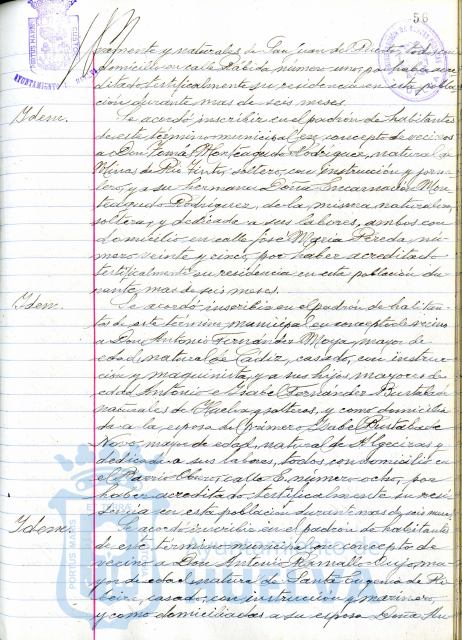 56
y naturales de San Juan del Puerto, todos con
domicilio en calle Rábida número uno, por haber acre-
ditado testificalmente su residencia en esta pobla-
ción durante mas de seis meses.
Idem. Se acordó inscribir en el padrón de habitantes
de este término municipal en concepto de vecinos
a Don Tomás Monteagudo Rodríguez, natural de
Minas de Rio Tinto, soltero, con instrucción y jorna-
lero, y a su hermana Doña Encarnación Mon-
teagudo Rodríguez, de la misma naturaleza,
soltera, y dedicada a sus labores, ambos con
domicilio en calle José Maria Pereda, nú-
mero veinte y cinco, por haber acreditado
testificalmente su residencia en esta población du-
rante mas de seis meses.
Idem. Se acordó inscribir en el padrón de habitan-
tes de este término municipal en concepto de vecino
a Don Antonio Fernández Moya, mayor de
edad, natural de Cádiz, casado, con instruc-
ción y maquinista, y a sus hijos mayores de
edad Antonio e Isabel Fernández
naturales de Huelva, solteros, y como domicilia-
da a la esposa del primero Isabel
mayor de edad, natural de Algeciras y
dedicada a sus labores, todos con domicilio en
el Barrio Obrero, calle E, número ocho, por
haber acreditado testificalmente su resi-
dencia en esta población durante mas de seis meses.
Idem. Se acordó inscribir en el padrón de habitantes
de este término municipal en concepto de
vecino a Don Antonio ma-
yor de edad, natural de Santa Eugenia de Ri-
beira, casado, con instrucción y marinero,
y como domiciliadas a su esposa Doña
AYUNTAMIENTO
PORTUS MARIS
Ayuntamiento de
HUELVA